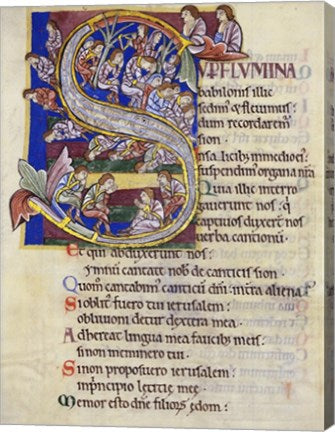 SUP FLUMINA
babilonis illic
sedim' & fleuimus:
dum recordarem
sion.
nsa licib; in medio ei':
suspendim' organa nr̃a
Quia illic interro
gauerunt nos: q̇
captiuos duxer̃t nos
uerba cantionũ.
Et qui abduxerunt nos:
ymnũ cantate nob̃ de canticis sion
Quom̃ cantabim' canticũ dn̄i: in t̃ra aliena
Si oblit' fuero tui ierusalem:
obliuioni detur dextera mea.
Adhereat lingua mea faucib; meis:
si non meminero tui.
Si non proposuero ierusalem:
in principio leticie mee.
Memor esto dñe filiorũ edom: